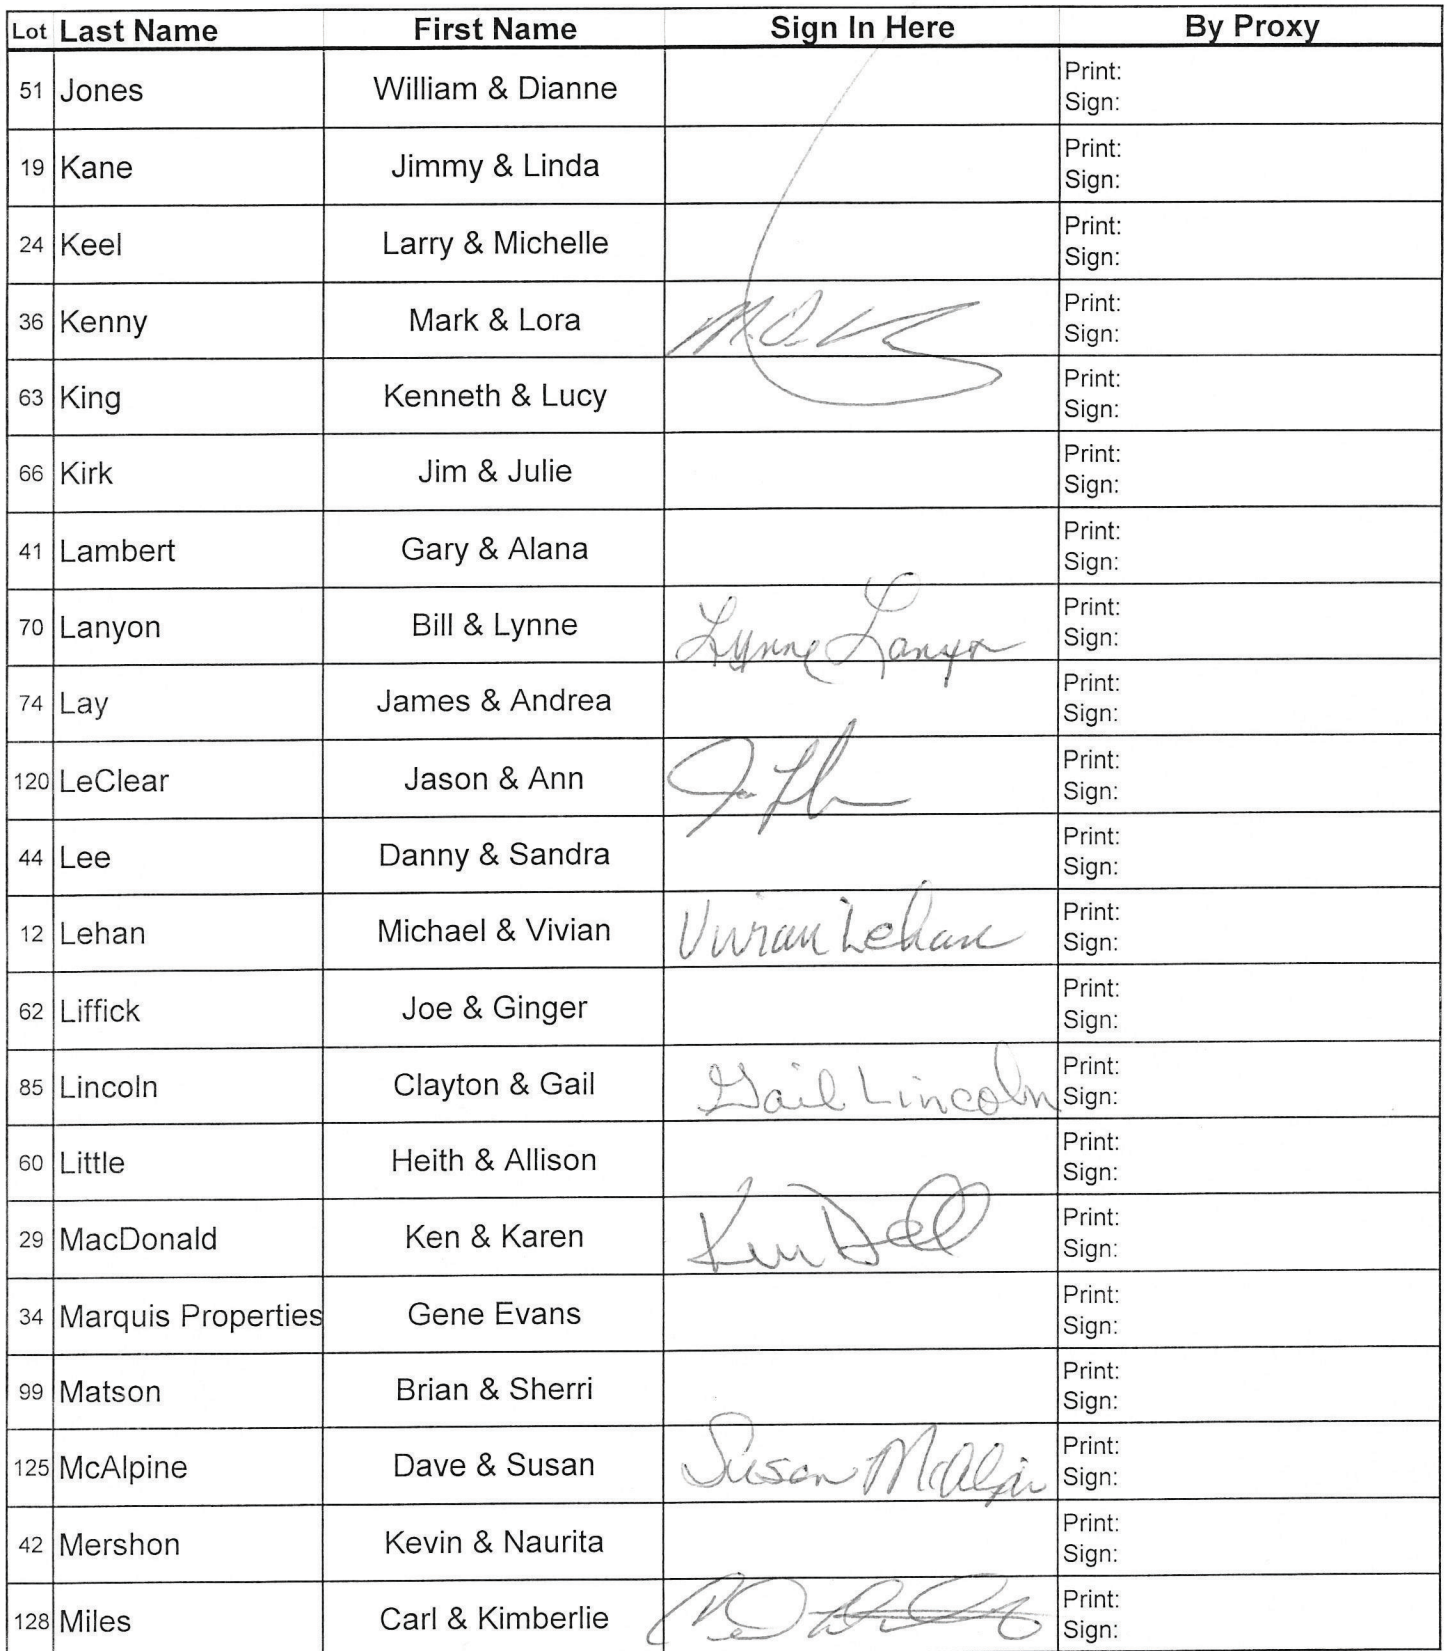 Lot Last Name First Name Sign In Here By Proxy
51 Jones William & Dianne Print:
Sign:
19 Kane Jimmy & Linda Print:
Sign:
24 Keel Larry & Michelle Print:
Sign:
36 Kenny Mark & Lora Print:
Sign:
63 King Kenneth & Lucy Print:
Sign:
66 Kirk Jim & Julie Print:
Sign:
41 Lambert Gary & Alana Print:
Sign:
70 Lanyon Bill & Lynne Lynne Lanyon Print:
Sign:
74 Lay James & Andrea Print:
Sign:
120 LeClear Jason & Ann Print:
Sign:
44 Lee Danny & Sandra Print:
Sign:
12 Lehan Michael & Vivian Vivian Lehan Print:
Sign:
62 Liffick Joe & Ginger Print:
Sign:
85 Lincoln Clayton & Gail Gail Lincoln Print:
Sign:
60 Little Heith & Allison Print:
Sign:
29 MacDonald Ken & Karen Print:
Sign:
34 Marquis Properties Gene Evans Print:
Sign:
99 Matson Brian & Sherri Print:
Sign:
125 McAlpine Dave & Susan Susan McAlpin Print:
Sign:
42 Mershon Kevin & Naurita Print:
Sign:
128 Miles Carl & Kimberlie Print:
Sign: